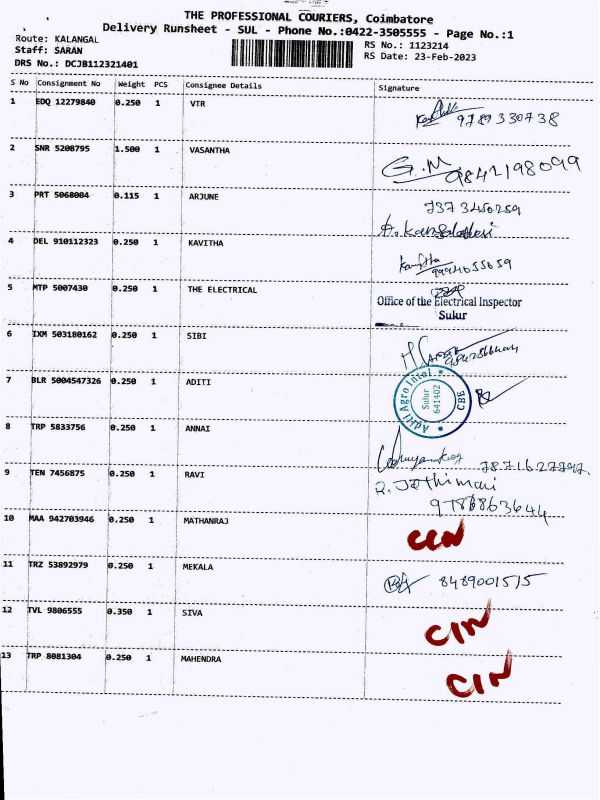 THE PROFESSIONAL COURIERS, Coimbatore
Delivery Runsheet - SUL - Phone No.:0422-3505555 - Page No.:1
Route: KALANGAL
RS No.: 1123214
Staff: SARAN
RS Date: 23-Feb-2023
DRS No.: DCJB112321401
S No Consignment No Weight PCS Consignee Details Signature
1 EDQ 12279840 0.250 1 VTR
2 SNR 5208795 1.500 1 VASANTHA G.M. 9842198099
3 PRT 5068004 0.115 1 ARJUNE 737 3450259
4 DEL 910112323 0.250 1 KAVITHA Kavitha
5 MTP 5007430 0.250 1 THE ELECTRICAL
Office of the Electrical Inspector
Sulur
6 IXM 503180162 0.250 1 SIBI
7 BLR 5004547326 0.250 1 ADITI
Aditi Agro Intel * CBE *
Sulur
641402
8 TRP 5833756 0.250 1 ANNAI
9 TEN 7456875 0.250 1 RAVI R. Jothimani
10 MAA 942703946 0.250 1 MATHANRAJ
11 TRZ 53892979 0.250 1 MEKALA 8489001515
12 TVL 9806555 0.350 1 SIVA CIN
13 TRP 8081304 0.250 1 MAHENDRA CIN